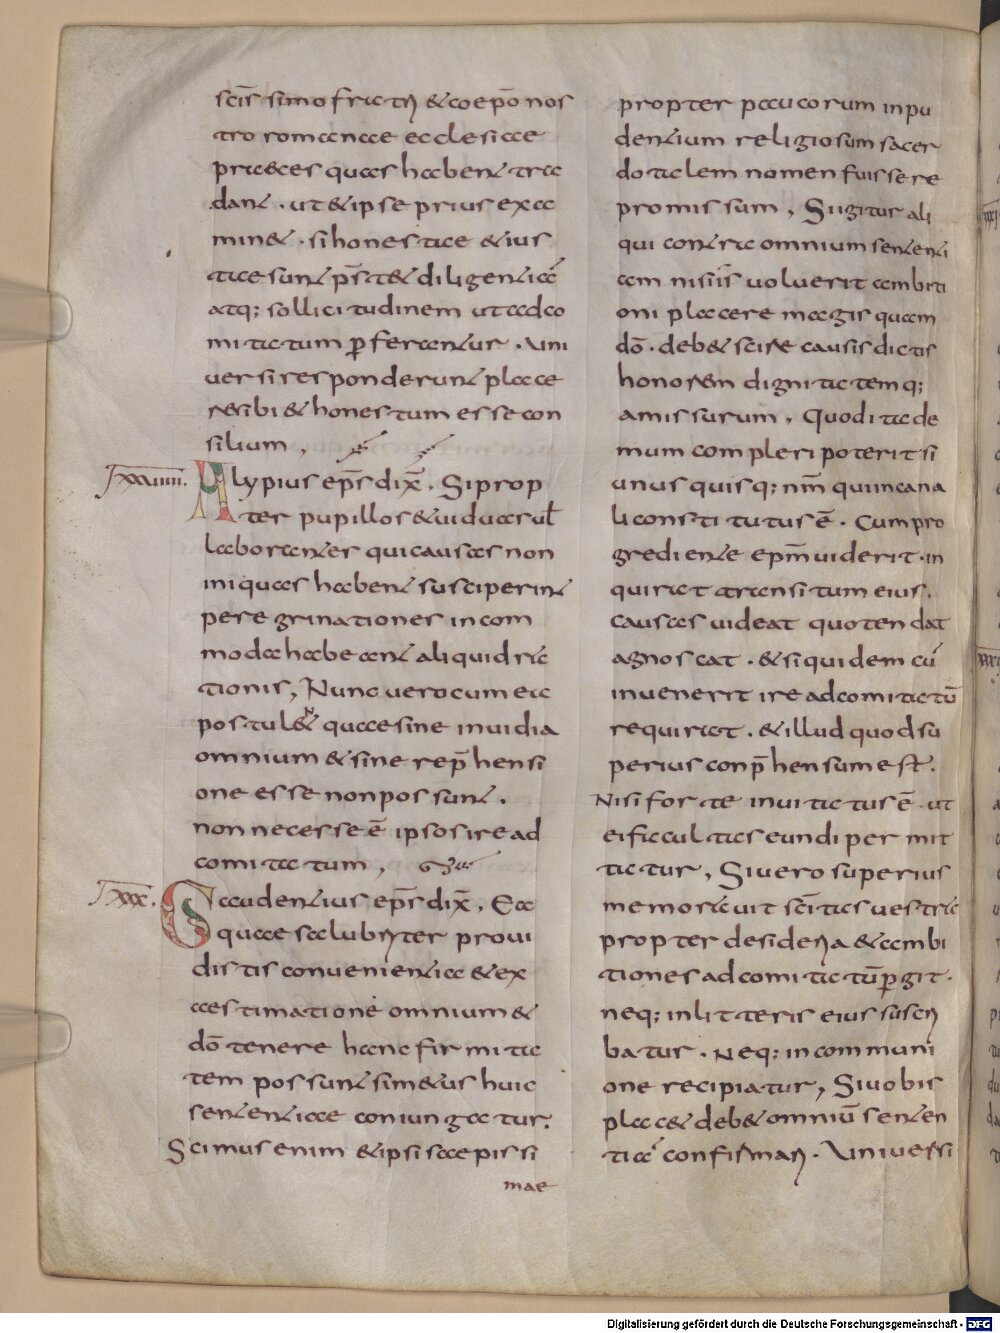 scīssimo fratri & coepō nos
tro romanae ecclesiae
praeest quas habent tra
dant . ut & ipse prius exa
min& . si honestae & ius
tae sunt p̄st& diligentiā
atq; sollicitudinem ut ad co
mitatum ꝑferantur . Uni
uersi responderunt place
re sibi & honestum esse con
silium ,
lxxuiiii.
Alypius ep̄s dix̄ . Si prop
ter pupillos & uiduas ul
laborantes qui causas non
iniquas habent susciperint
peregrinationes incom
moda habeant aliquid ra
tionis , Nunc uero cum ea
postul&N quae sine inuidia
omnium & sine rep̄hensi
one esse non possunt .
non necesse ē ipsos ire ad
comitatum ,
lxxx.
Gaudentius ep̄s dix̄ . Ea
quae salubriter proui
distis conuenientia & ex
aestimatione omnium &
dō tenere hanc firmita
tem possunt si metus huic
sententiae coniungatur .
Scimus enim & ipsi saepissi
mae
propter paucorum inpu
dentium religiosum sacer
dotalem nomen fuisse re
promissum , Si igitur ali
qui contra omnium sententi
am nisi is uoluerit ambiti
oni placere magis quam
dō . deb& scire causis dictis
honorem dignitatemq;
amissurum , Quod ita de
mum compleri poterit si
unusquisq; nr̄m qui in cana
li constitutus ē . Cum pro
gredientē epm̄ uiderit . in
quirat transitum eius .
causas uideat quo tendat
agnoscat . & si quidem cū
inuenerit ire ad comitatū
requirat . & illud quod su
perius conp̄hensum est .
Nisi forte inuitatus ē . ut
ei facultas eundi permit
tatur , Si uero superius
memorauit scītas uestra
propter desideria & ambi
tiones ad comitatū ꝑgit .
neq; in litteris eius suscri
batur . Neq; in communi
one recipiatur , Si uobis
plac& deb& omniū senten
tia confirmari . Uniuersi
Digitalisierung gefördert durch die Deutsche Forschungsgemeinschaft - DFG